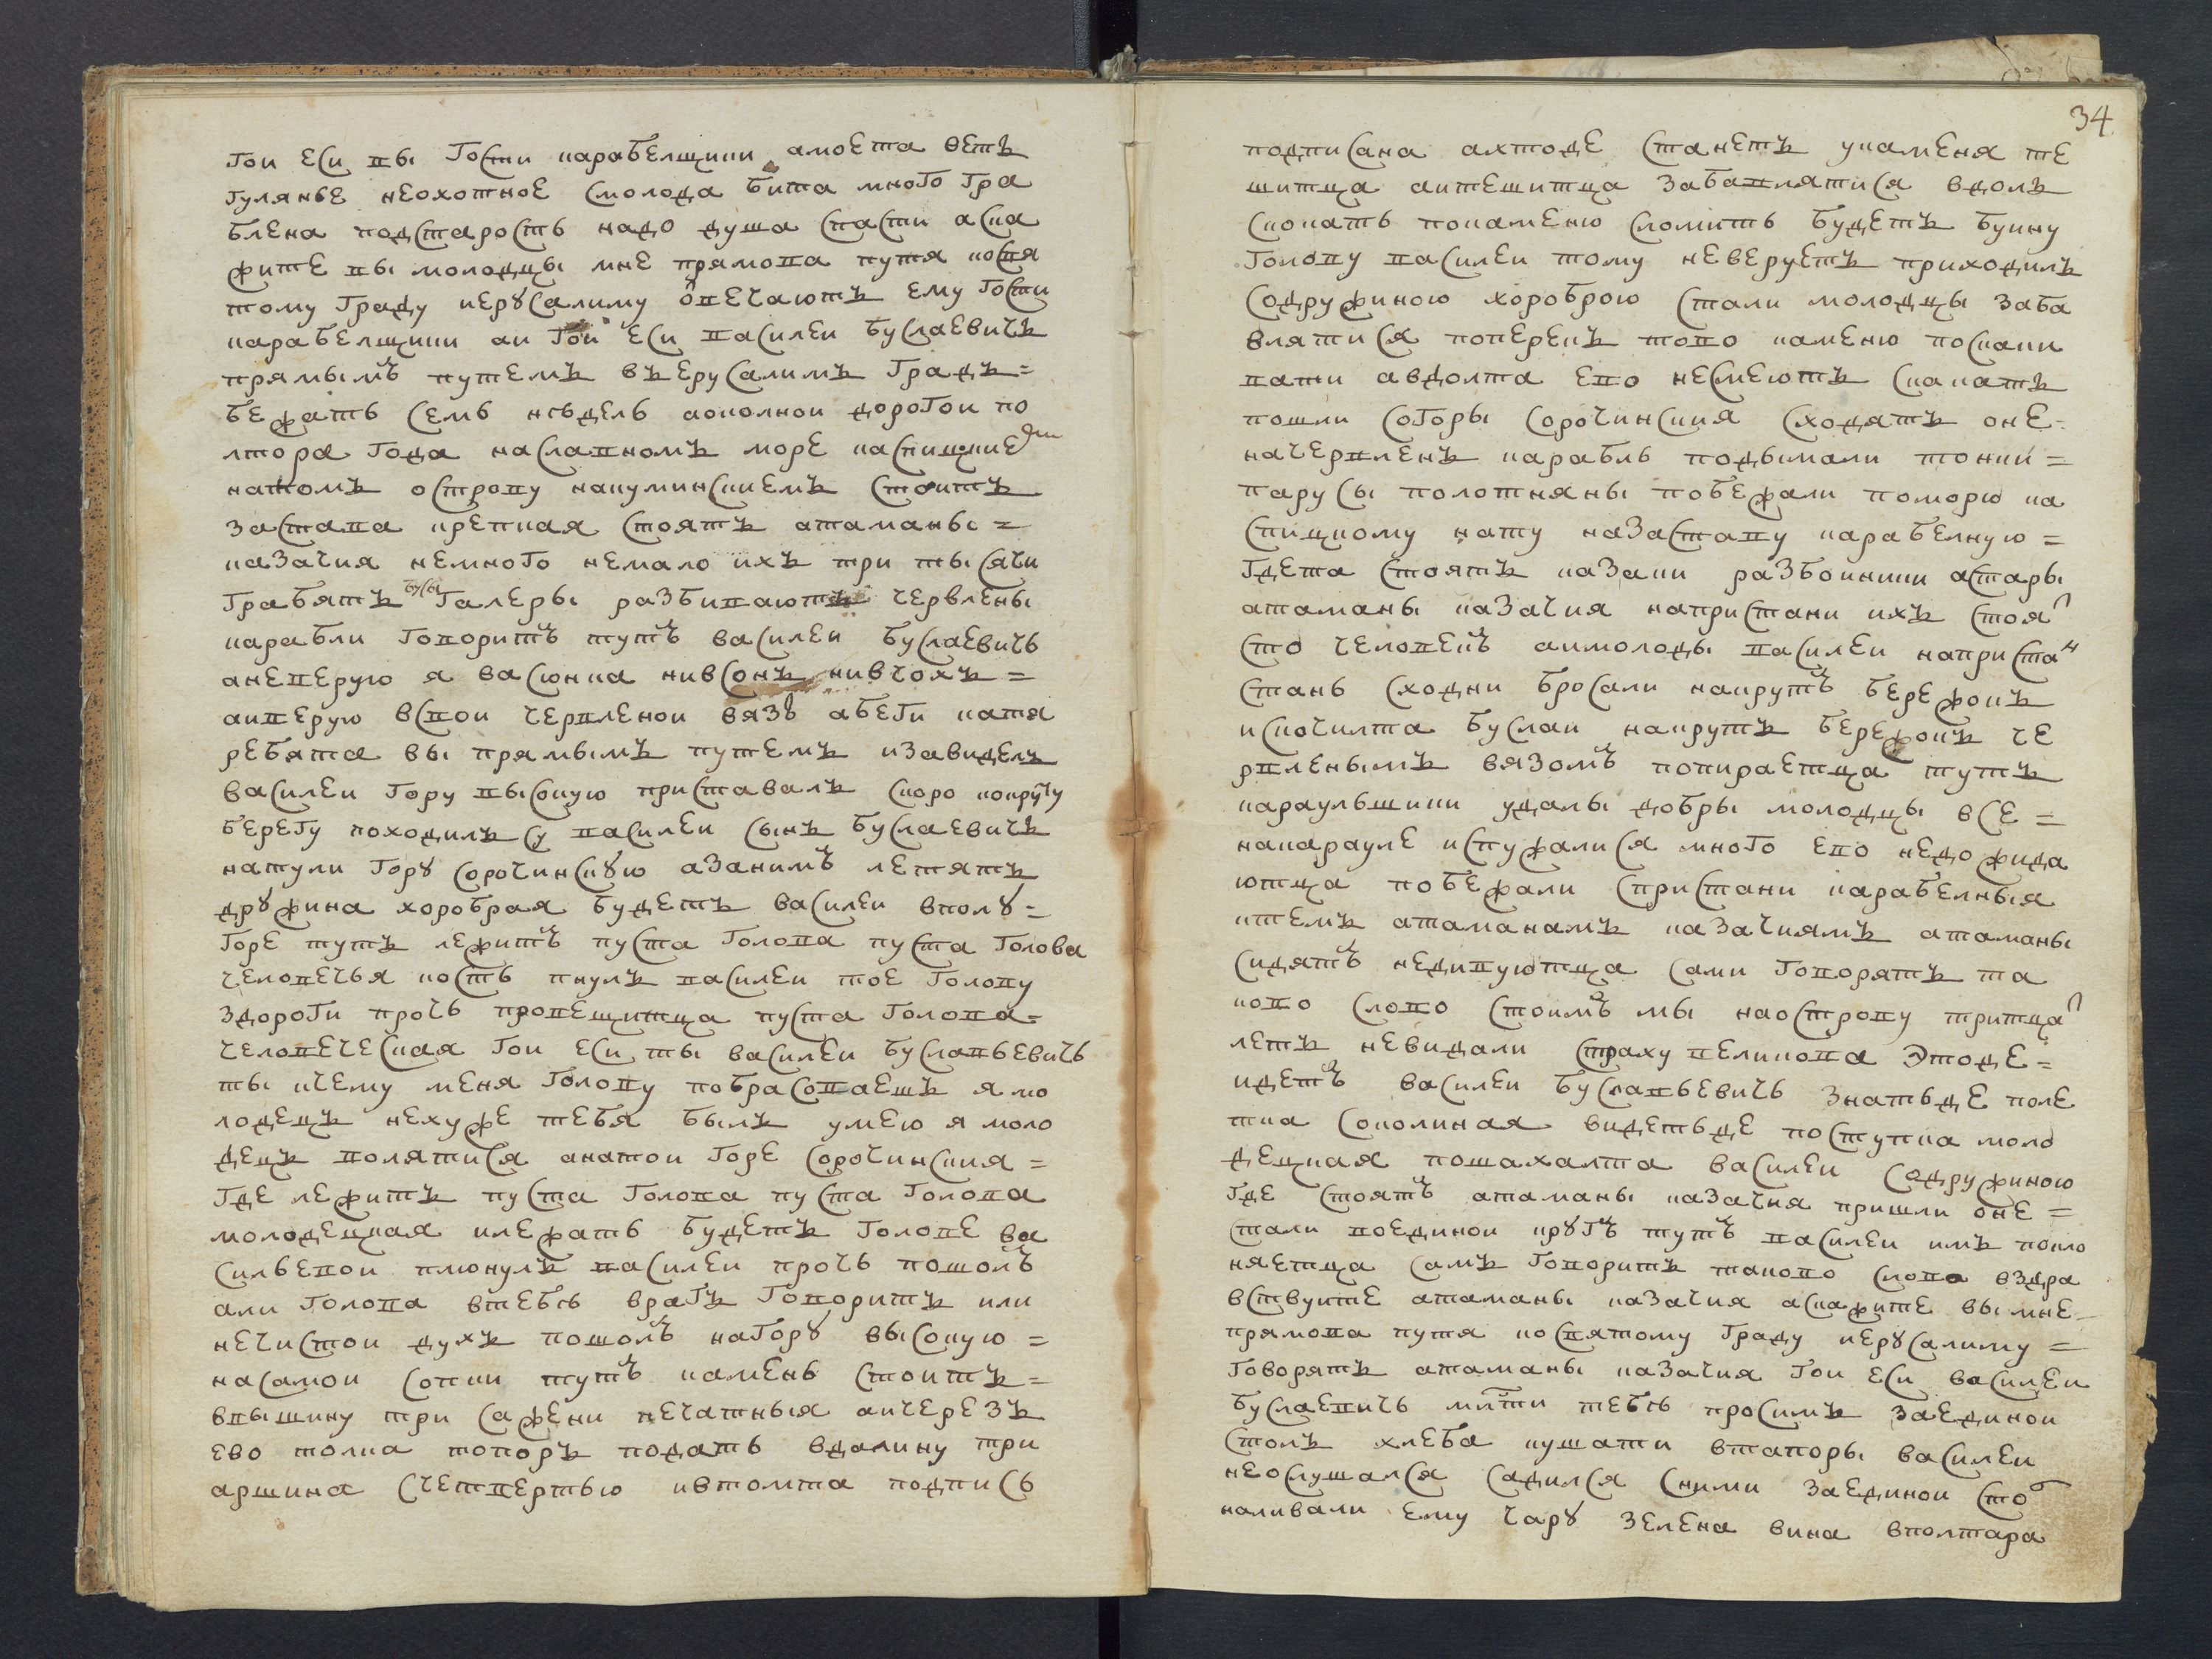 гои еси вы гости карабелщики а моета веть
гулянье неохотное смолода бита много гра
блена подстарость надо душа спасти аска
жите вы молодцы мне прямова путя косвя
тому граду иерусалиму ѿвечаютъ ему гости
карабелщики аи гои еси василеи буслаевичь
прямымъ путемъ въерусалимъ градъ=
бежать семь нѣдель аокольнои дорогои по
лтора года наславномъ море каспицкиемъ
натомъ острову накуминскиемъ стоитъ
застава крепкая стоятъ атаманы=
казачия немного немало ихъ три тысячи
грабятъ бусы галеры разбиваютъ червлены
карабли говоритъ тутъ василеи буслаевичь
аневерую я васюнка нивсонъ нивчохъ=
аиверую всвои червленои вязъ абеги катя
ребята вы прямымъ путемъ изавиделъ
василеи гору высокую приставалъ скоро коикруту
берегу походилъ су василеи сынъ буслаевичь
натули гору сорочинскую азанимъ летятъ
дружина хоробрая будетъ василеи вполу=
горе тутъ лежитъ пуста голова пуста голова
человечья кость пнулъ василеи тое голову
здороги прочь провещитца пуста голова=
человеческая гои еси ты василеи буславьевичь
ты кчему меня голову побрасоваешъ я мо
лодецъ нехуже тебя былъ умею я моло
децъ волятися анатои горе сорочинския=
где лежитъ пуста голова пуста голова
молодецкая илежать будетъ голове ва
сильевои плюнулъ василеи прочь пошолъ
али голова втебѣ врагъ говоритъ или
нечистои духъ пошолъ нагору высокую=
насамои сопки тутъ камень стоитъ=
ввышину три сажени печатныя аичерезъ
ево толка топоръ подать вдалину три
аршина счетвертью ивтомта подпись
34
подписана ахтоде станетъ укаменя те
шитца аитешитца забавлятися вдоль
скокать покаменю сломить будетъ буину
голову василеи тому неверуетъ приходилъ
содружиною хороброю стали молодцы заба
влятися поперекъ тово каменю поскаки
вати авдолта ево несмеютъ скакать
пошли согоры сорочинския сходятъ оне=
начервленъ карабль подымали тонки=
парусы полотняны побежали поморю ка
спицкому нату назаставу карабельную=
гдета стоятъ казаки разбоиники астары
атаманы казачия напристани ихъ стоят
сто человекъ аимолоды василеи напристан
стань сходни бросали накрутъ бережокъ
искочилта буслаи накрутъ бережокъ че
рвленымъ вязомъ попираетца тутъ
караульшики удалы добры молодцы все=
накарауле испужалися много ево недожида
ютца побежали спристани карабельныя
ктемъ атаманамъ казачиямъ атаманы
сидятъ недивуютца сами говорятъ та
ково слово стоимъ мы наострову тритцат
летъ невидали страху великова этоде=
идетъ василеи буславьевичь знатьде поле
тка соколиная видетьде поступка моло
децкая пошахалта василеи содружиною
где стоятъ атаманы казачия пришли оне=
стали воединои кругъ тутъ василеи имъ покло
няетца самъ говоритъ таково слово вздра
вствуите атаманы казачия аскажите вы мне
прямова путя косвятому граду иерусалиму=
говорятъ атаманы казачия гои еси василеи
буслаевичь милости тебѣ просимъ заединои
столъ хлеба кушати втапоры василеи
неослушался садился сними заединои стол
наливали ему чару зелена вина вполтара